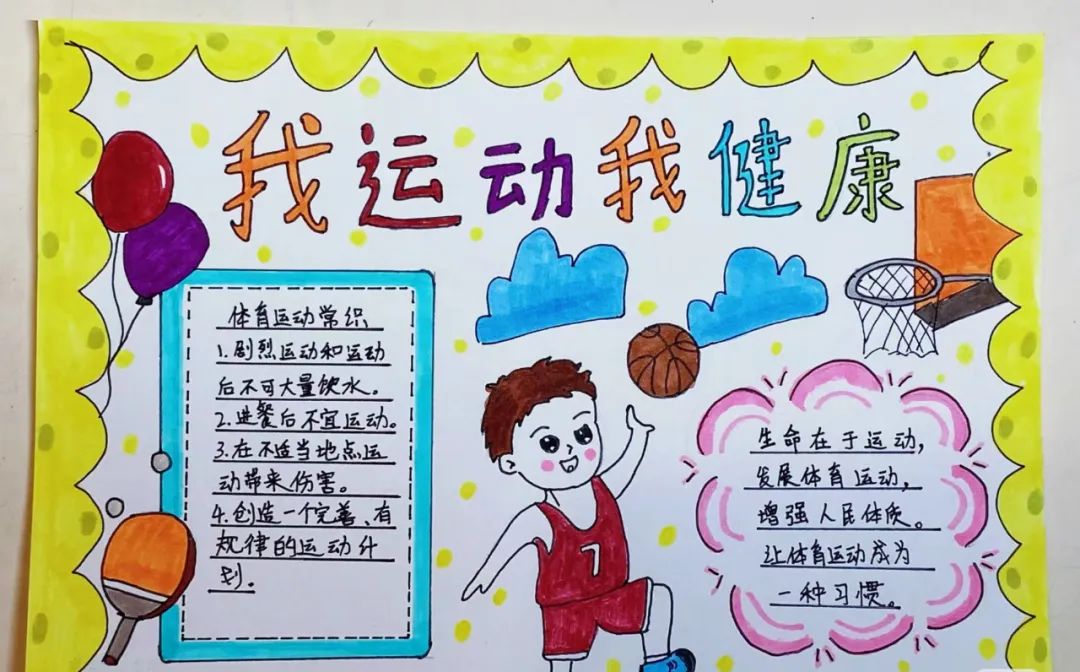 我运动我健康
体育运动常识
1.剧烈运动和运动
后不可大量饮水。
2.进餐后不宜运动。
3.在不适当地点运
动带来伤害。
4.创造一个完善、有
规律的运动计
划。
7
生命在于运动,
发展体育运动,
增强人民体质。
让体育运动成为
一种习惯。